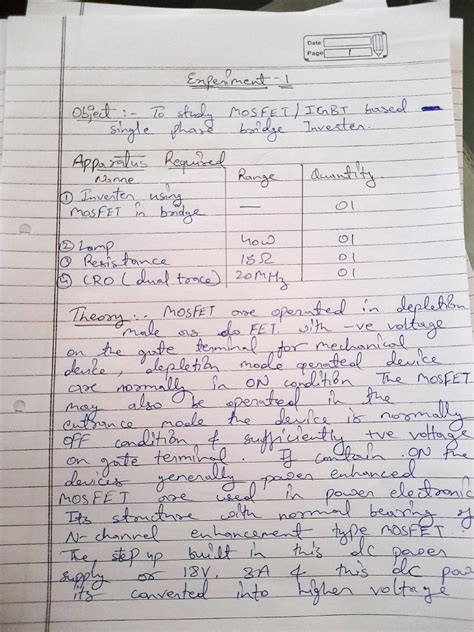 Date
Page 1
Experiment - 1
Object :- To study MOSFET / IGBT based
single phase bridge Inverter.
Apparatus Required
Name Range Quantity
① Inverter using
MOSFET in bridge — 01
② Lamp 40W 01
③ Resistance 18Ω 01
④ CRO (dual trace) 20MHz 01
Theory :- MOSFET are operated in depletion
made as do FET with -ve voltage
on the gate terminal for mechanical
device, depletion mode operated device
are normally in ON condition The MOSFET
may also be operated in the
entrance mode the device is normally
OFF condition & sufficiently +ve voltage
on gate terminal. If contain ON fine
devices generally power enhanced
MOSFET are used in power electronic
Its structure with normal bearing of
N-channel enhancement type MOSFET.
The step up built in this dc power
supply or 18V, 3A & this dc
its converted into higher voltage